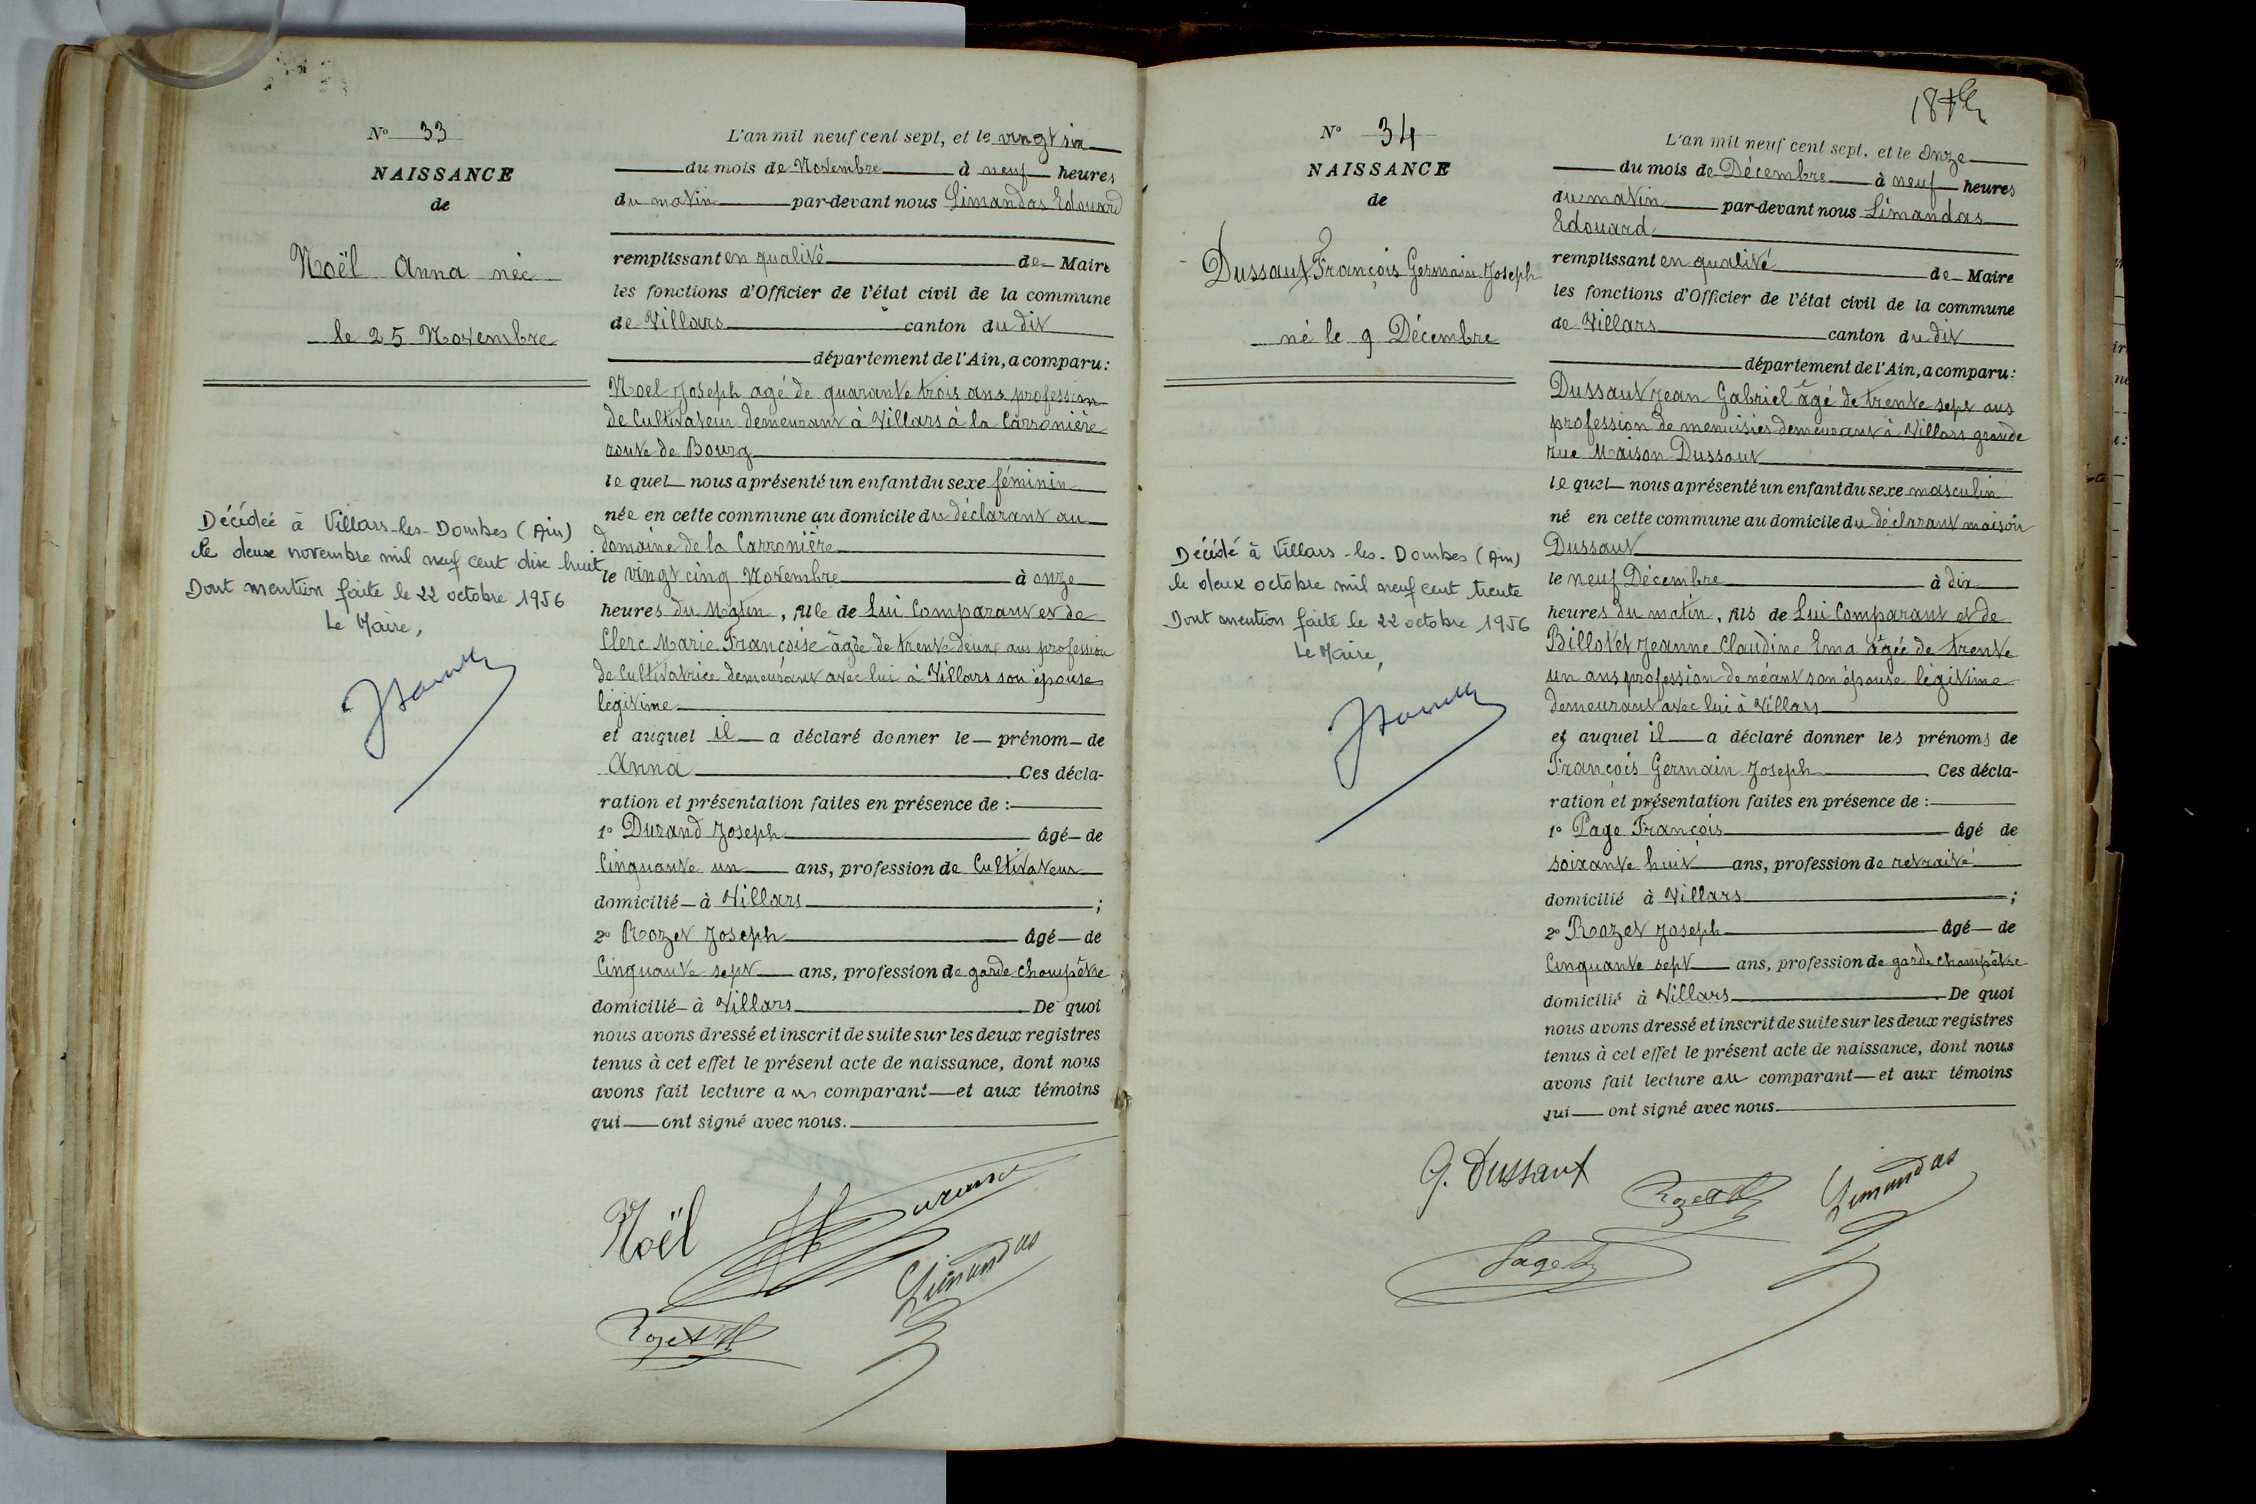 N° 33
NAISSANCE
de
Noël Anna née
le 25 Novembre
Décédée à Villars-les-Dombes (Ain)
le deux novembre mil neuf cent dix huit
Dont mention faite le 22 octobre 1956
Le Maire,
L'an mil neuf cent sept, et le vingt six
du mois de Novembre à neuf heures
du matin par-devant nous Limandas Edouard
remplissant en qualité de Maire
les fonctions d'Officier de l'état civil de la commune
de Villars canton du dit
département de l'Ain, a comparu:
Noel Joseph agé de quarante trois ans profession
de Cultivateur demeurant à Villars à la Carronière
route de Bourg
le quel nous a présenté un enfant du sexe féminin
née en cette commune au domicile du déclarant au
domaine de la Carronière
le vingt cinq Novembre à onze
heures du Matin, fille de Lui Comparant et de
Clerc Marie Françoise âgée de trente deux ans profession
de Cultivatrice demeurant avec lui à Villars son épouse
légitime
et auquel il a déclaré donner le prénom de
Anna Ces décla-
ration et présentation faites en présence de :
1° Durand Joseph âgé de
Cinquante un ans, profession de Cultivateur
domicilié à Villars ;
2° Rozet Joseph âgé de
Cinquante sept ans, profession de garde champêtre
domicilié à Villars De quoi
nous avons dressé et inscrit de suite sur les deux registres
tenus à cet effet le présent acte de naissance, dont nous
avons fait lecture au comparant et aux témoins
qui ont signé avec nous.
Noël Durand
Limandas
Rozet
N° 34
NAISSANCE
de
Dussaut François Germain Joseph
né le 9 Décembre
Décédé à Villars-les-Dombes (Ain)
le deux octobre mil neuf cent trente
Dont mention faite le 22 octobre 1956
Le Maire,
L'an mil neuf cent sept, et le onze
du mois de Décembre à neuf heures
du matin par-devant nous Limandas
Edouard
remplissant en qualité de Maire
les fonctions d'Officier de l'état civil de la commune
de Villars canton du dit
département de l'Ain, a comparu:
Dussaut Jean Gabriel âgé de trente sept ans
profession de menuisier demeurant à Villars grande
rue Maison Dussaut
le quel nous a présenté un enfant du sexe masculin
né en cette commune au domicile du déclarant maison
Dussaut
le neuf Décembre à dix
heures du matin, fils de Lui Comparant et de
Billotet Jeanne Claudine Ema âgée de trente
un ans profession de néant son épouse légitime
demeurant avec lui à Villars
et auquel il a déclaré donner les prénoms de
François Germain Joseph Ces décla-
ration et présentation faites en présence de :
1° Page François âgé de
soixante huit ans, profession de retraité
domicilié à Villars ;
2° Rozet Joseph âgé de
Cinquante sept ans, profession de garde champêtre
domicilié à Villars De quoi
nous avons dressé et inscrit de suite sur les deux registres
tenus à cet effet le présent acte de naissance, dont nous
avons fait lecture au comparant et aux témoins
qui ont signé avec nous
G. Dussaut Rozet Limandas
Page